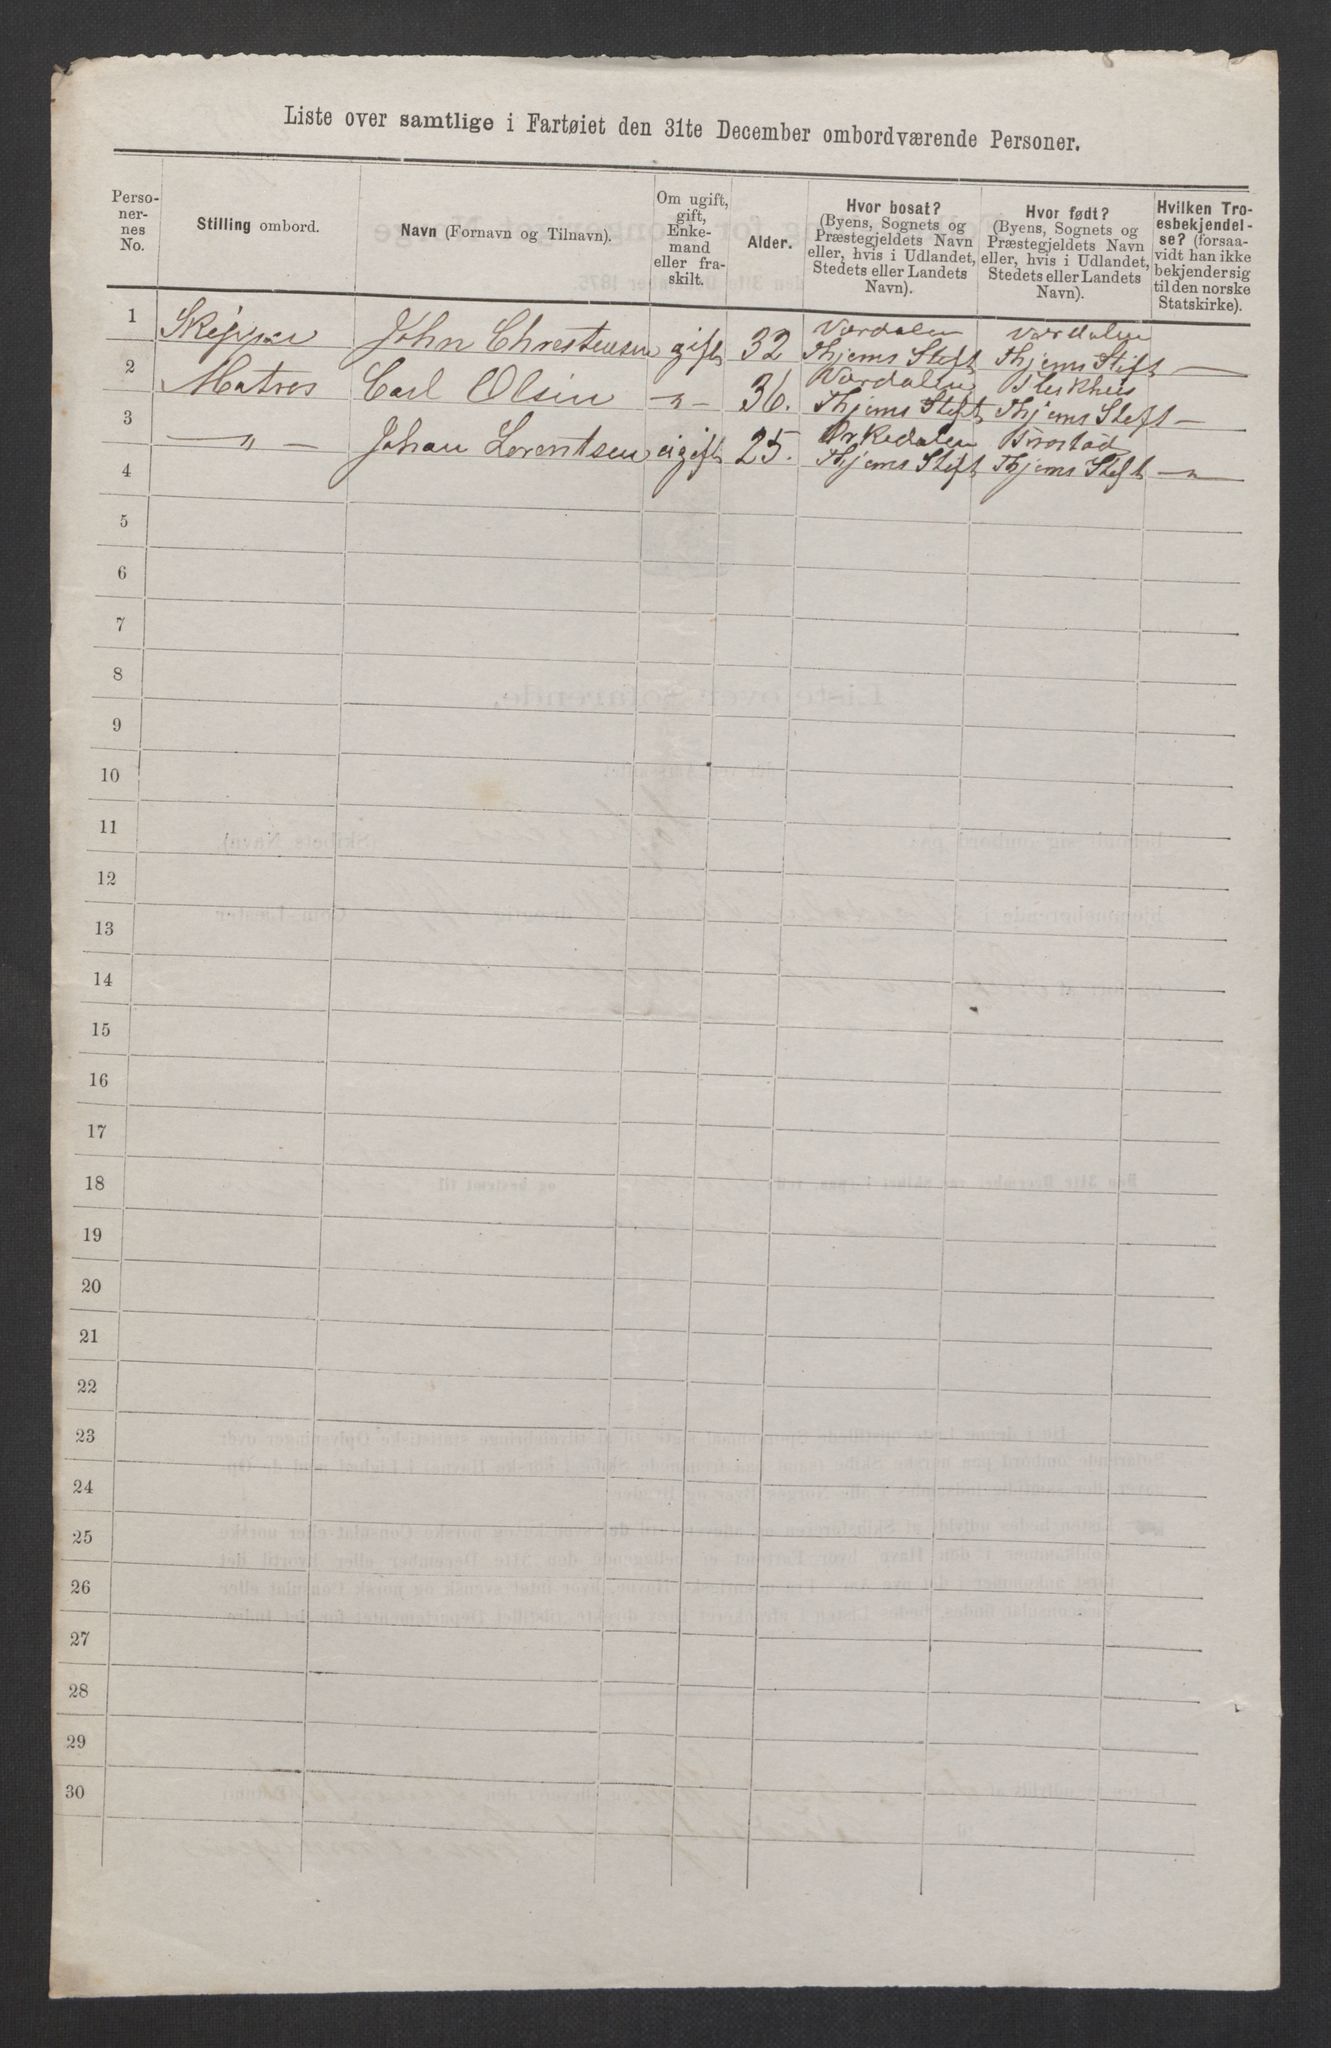 Liste over samtlige i Fartøiet den 31te December ombordværende Personer.
Perso-
ner-
nes
No.
Stilling ombord.
Navn (Fornavn og Tilnavn).
Om ugift,
gift,
Enke-
mand
eller fra-
skilt.
Alder.
Hvor bosat?
(Byens, Sognets og
Præstegjeldets Navn
eller, hvis i Udlandet,
Stedets eller Landets
Navn).
Hvor født?
(Byens, Sognets og
Præstegjeldets Navn
eller, hvis i Udlandet,
Stedets eller Landets
Navn).
Hvilken Tro-
esbekjendel-
se? (forsaa-
vidt han ikke
bekjender sig
til den norske
Statskirke).
1 Skipper John Christensen gift 32 Værdalen Thjems Stift Værdalen Thjems Stift —
2 Matros Carl Olsen —„— 36. Værdalen Thjems Stift Thjems Stift —
3 —„— Johan Lorentsen ugift 25. Orkedalen Thjems Stift Frostad Thjems Stift —„—
4
5
6
7
8
9
10
11
12
13
14
15
16
17
18
19
20
21
22
23
24
25
26
27
28
29
30